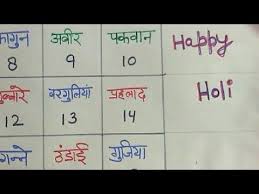 फागुन अबीर पकवान Happy
8 9 10
गुब्बारे बरगुलियां प्रहलाद Holi
12 13 14
गन्ने ठंडाई गुजिया